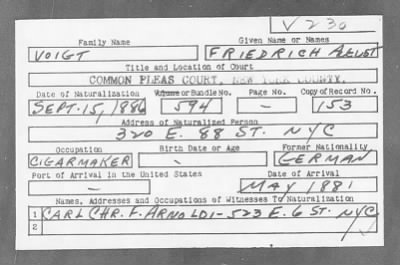 V 230
Family Name Given Name or Names
VOIGT FRIEDRICH AUGUST
Title and Location of Court
COMMON PLEAS COURT, NEW YORK COUNTY.
Date of Naturalization Volume or Bundle No. Page No. Copy of Record No.
SEPT. 15, 1886 594 - 153
Address of Naturalized Person
320 E. 88 ST. NYC
Occupation Birth Date or Age Former Nationality
CIGARMAKER - GERMAN
Port of Arrival in the United States Date of Arrival
- MAY 1881
Names, Addresses and Occupations of Witnesses To Naturalization
1 CARL CHR. F. ARNOLDI - 523 E. 6 ST. NYC
2